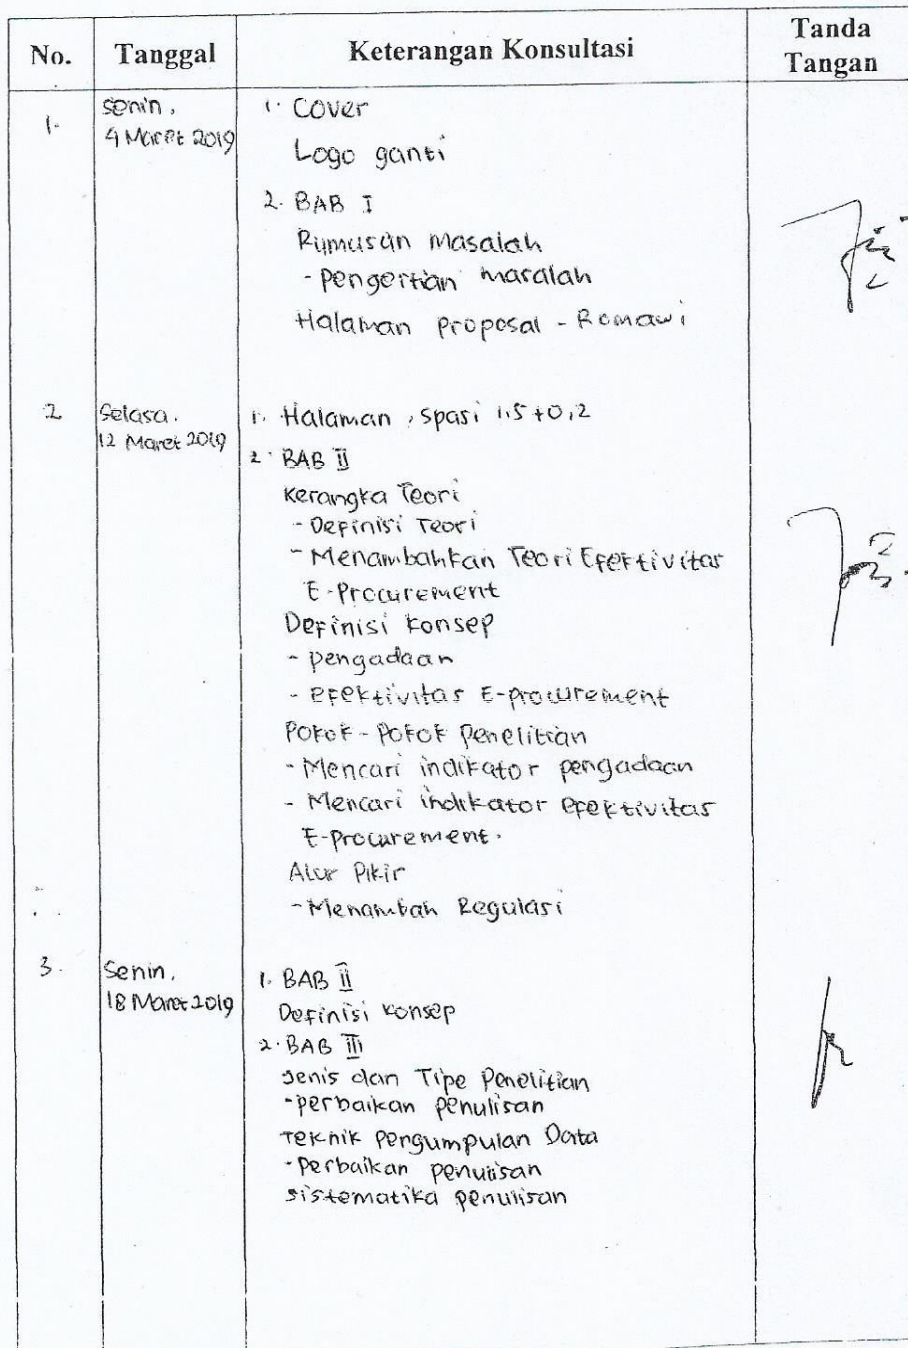 No. Tanggal Keterangan Konsultasi Tanda Tangan
1. Senin, 1. Cover
4 Maret 2019 Logo ganti
2. BAB I
Rumusan Masalah
- Pengertian masalah
Halaman Proposal - Romawi
2 Selasa. 1. Halaman, Spasi 1,5 + 0,2
12 Maret 2019 2. BAB II
Kerangka Teori
- Definisi Teori
- Menambahkan Teori Efektivitas
E-Procurement
Definisi Konsep
- Pengadaan
- Efektivitas E-procurement
Pokok-Pokok Penelitian
- Mencari indikator pengadaan
- Mencari indikator efektivitas
E-Procurement.
Alur Pikir
- Menambah Regulasi
3. Senin, 1. BAB II
18 Maret 2019 Definisi Konsep
2. BAB III
Jenis dan Tipe Penelitian
- perbaikan penulisan
Teknik Pengumpulan Data
- Perbaikan penulisan
sistematika penulisan